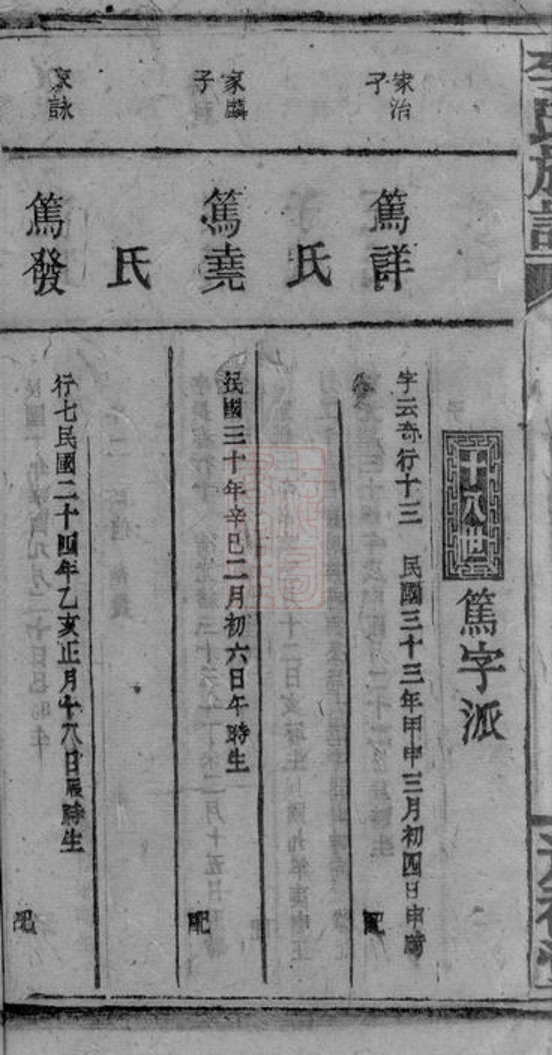 李氏族譜
十八世
篤字派
家治
子
篤詳
字云奇行十三 民國三十三年甲申三月初四日申時
配
氏
家麟
子
篤堯
民國三十年辛巳二月初六日午時生
配
氏
家詠
篤發
行七民國二十四年乙亥正月十八日辰時生
配